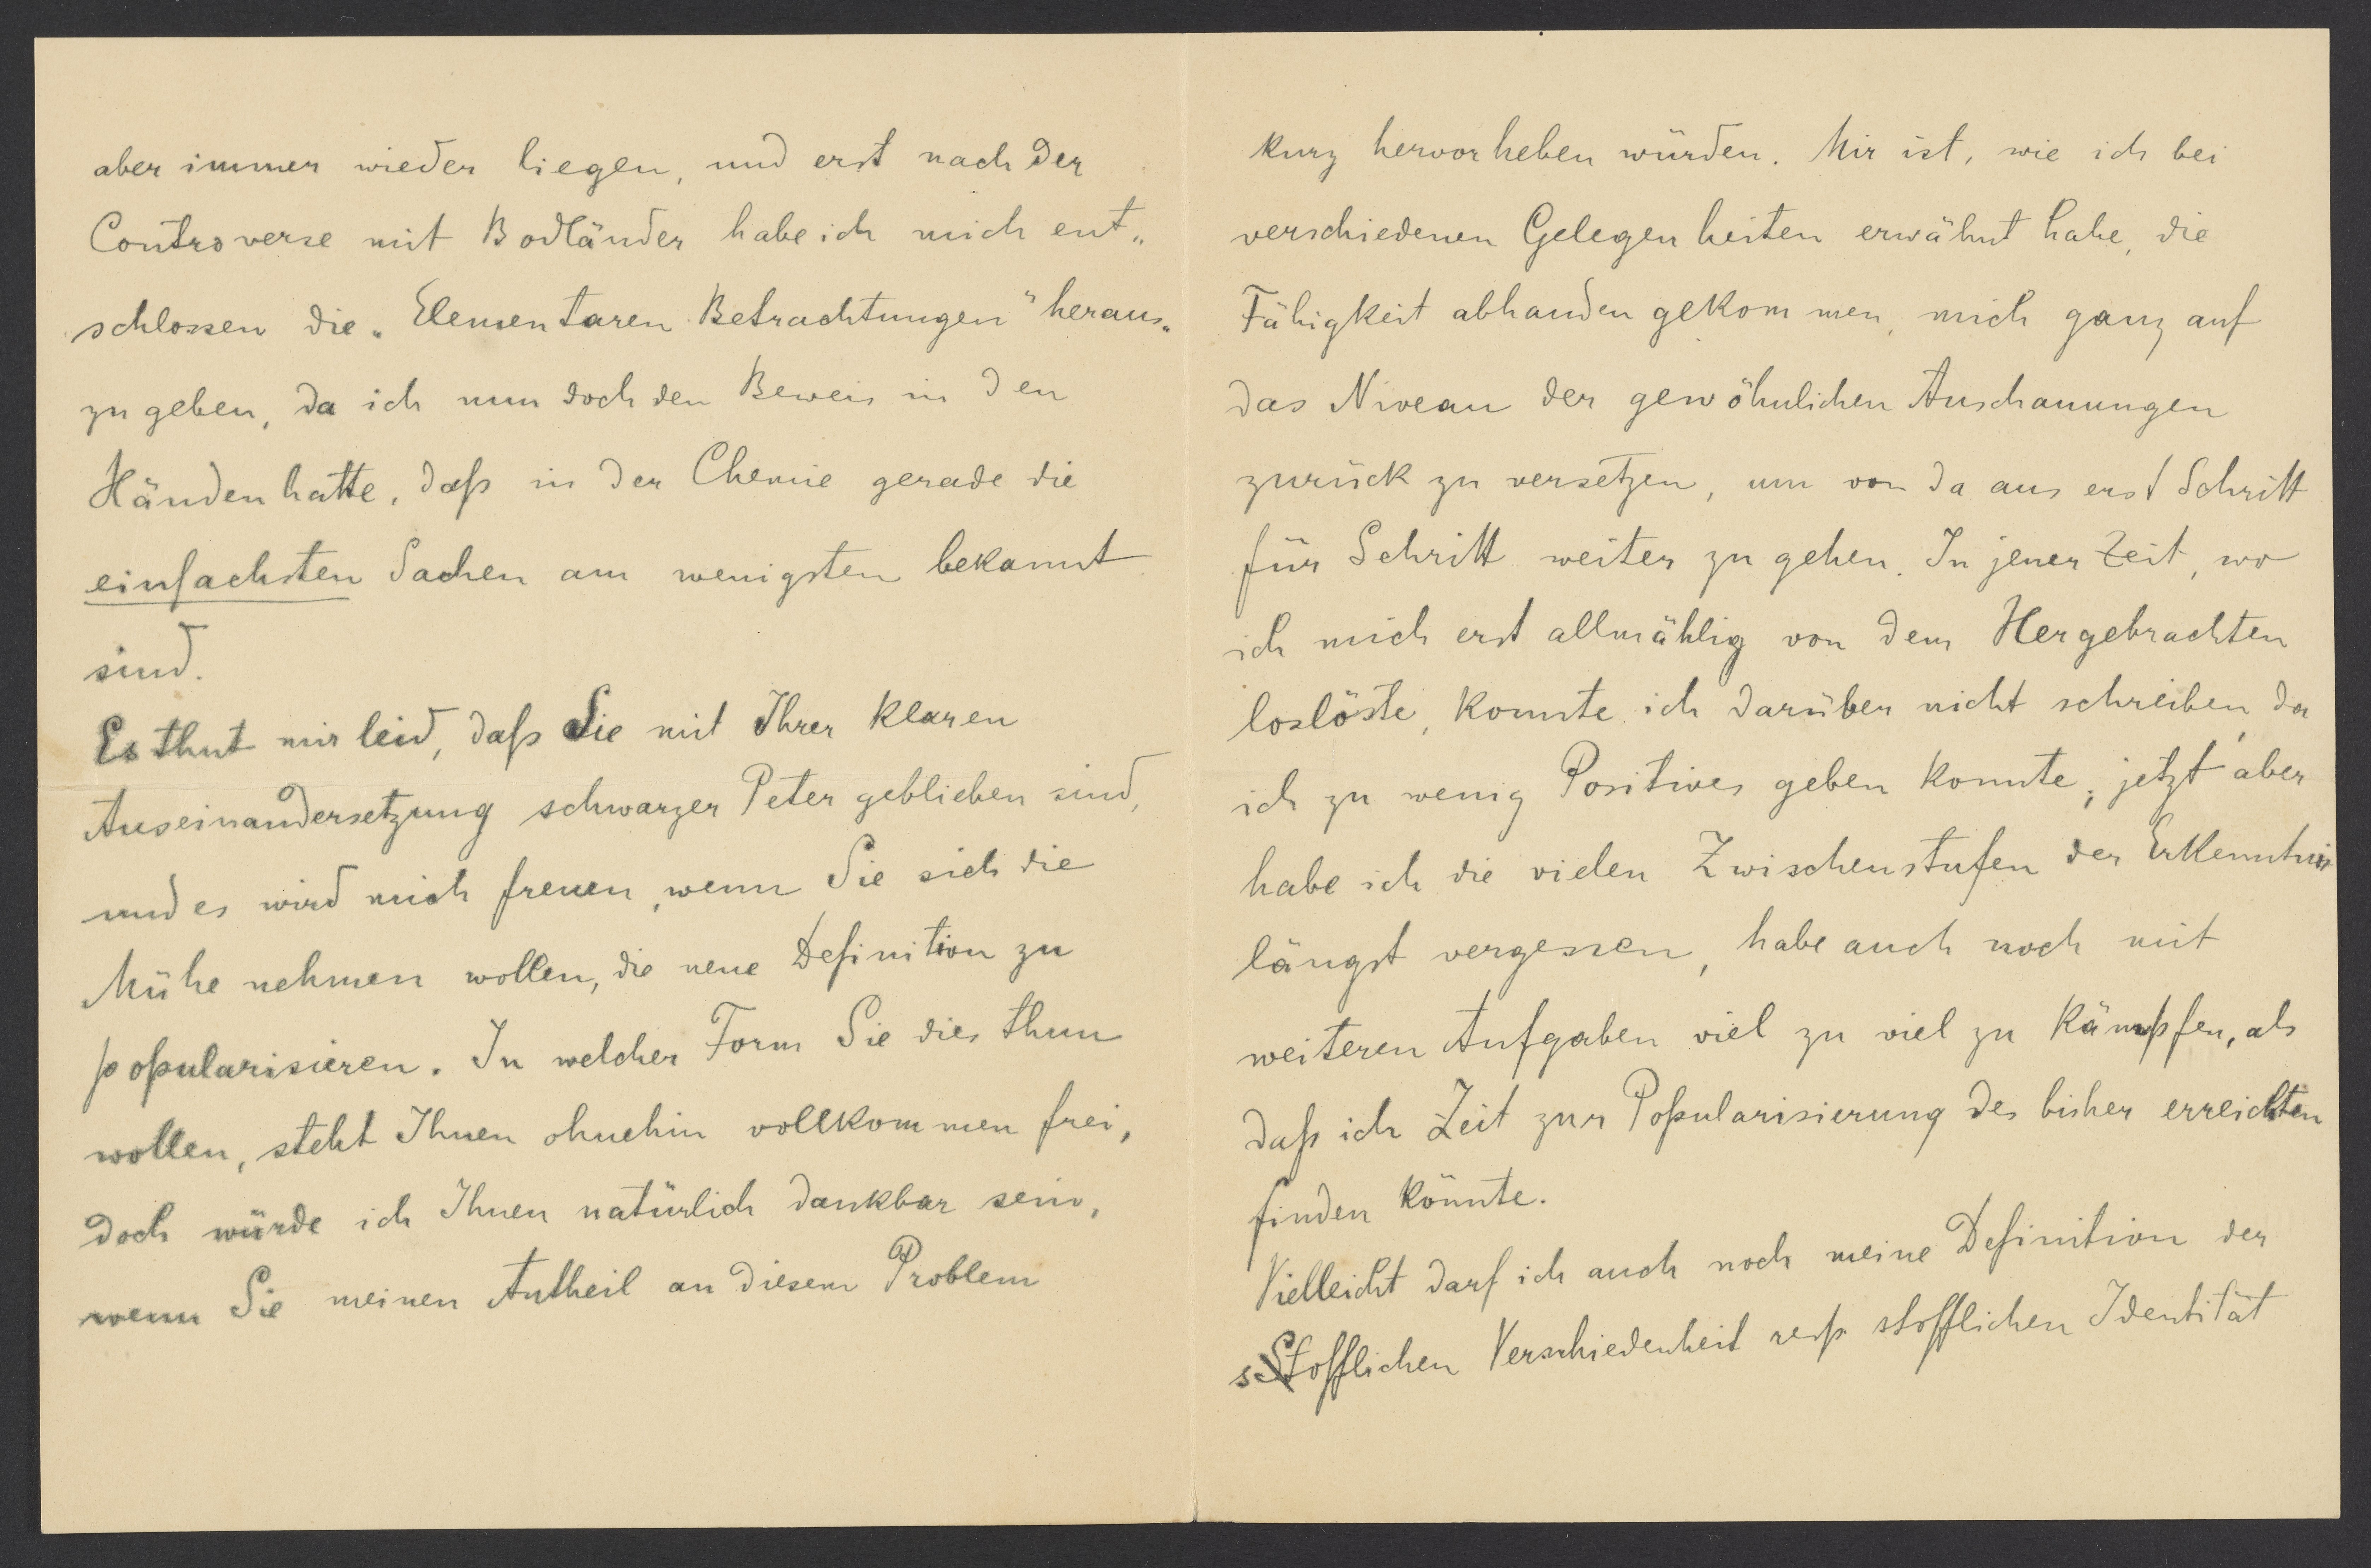 aber immer wieder liegen, und erst nach der
Controverse mit Bodländer habe ich mich ent„
schlossen die „Elementaren Betrachtungen" heraus„
zu geben, da ich nun doch den Beweis in den
Händen hatte, daß in der Chemie gerade die
einfachsten Sachen am wenigsten bekannt
sind.
Es thut mir leid, daß Sie mit Ihrer klaren
Auseinandersetzung schwarzer Peter geblieben sind,
und es wird mich freuen, wenn Sie sich die
Mühe nehmen wollen, die neue Definition zu
popularisieren. In welcher Form Sie dies thun
wollen, steht Ihnen ohnehin vollkommen frei,
doch würde ich Ihnen natürlich dankbar sein,
wenn Sie meinen Antheil an diesem Problem
kurz hervorheben würden. Mir ist, wie ich bei
verschiedenen Gelegenheiten erwähnt habe, die
Fähigkeit abhanden gekommen, mich ganz auf
das Niveau der gewöhnlichen Anschauungen
zurück zu versetzen, um von da aus erst Schritt
für Schritt weiter zu gehen. In jener Zeit, wo
ich mich erst allmählig von dem Hergebrachten
loslöste, konnte ich darüber nicht schreiben, da
ich zu wenig Positives geben konnte; jetzt aber
habe ich die vielen Zwischenstufen der Erkenntnis
längst vergessen, habe auch noch mit
weiteren Aufgaben viel zu viel zu kämpfen, als
daß ich Zeit zur Popularisierung des bisher erreichten
finden könnte.
Vielleicht darf ich auch noch meine Definition der
stofflichen Verschiedenheit resp stofflichen Identität